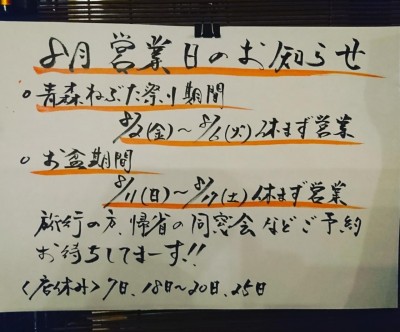 8月営業日のお知らせ
○青森ねぶた祭り期間
8/2(金)〜8/6(火)休まず営業
○お盆期間
8/11(日)〜8/17(土)休まず営業
旅行の方、帰省の同窓会などご予約
お待ちしてまーす!!
〈店休み〉7日、18日〜20日、25日